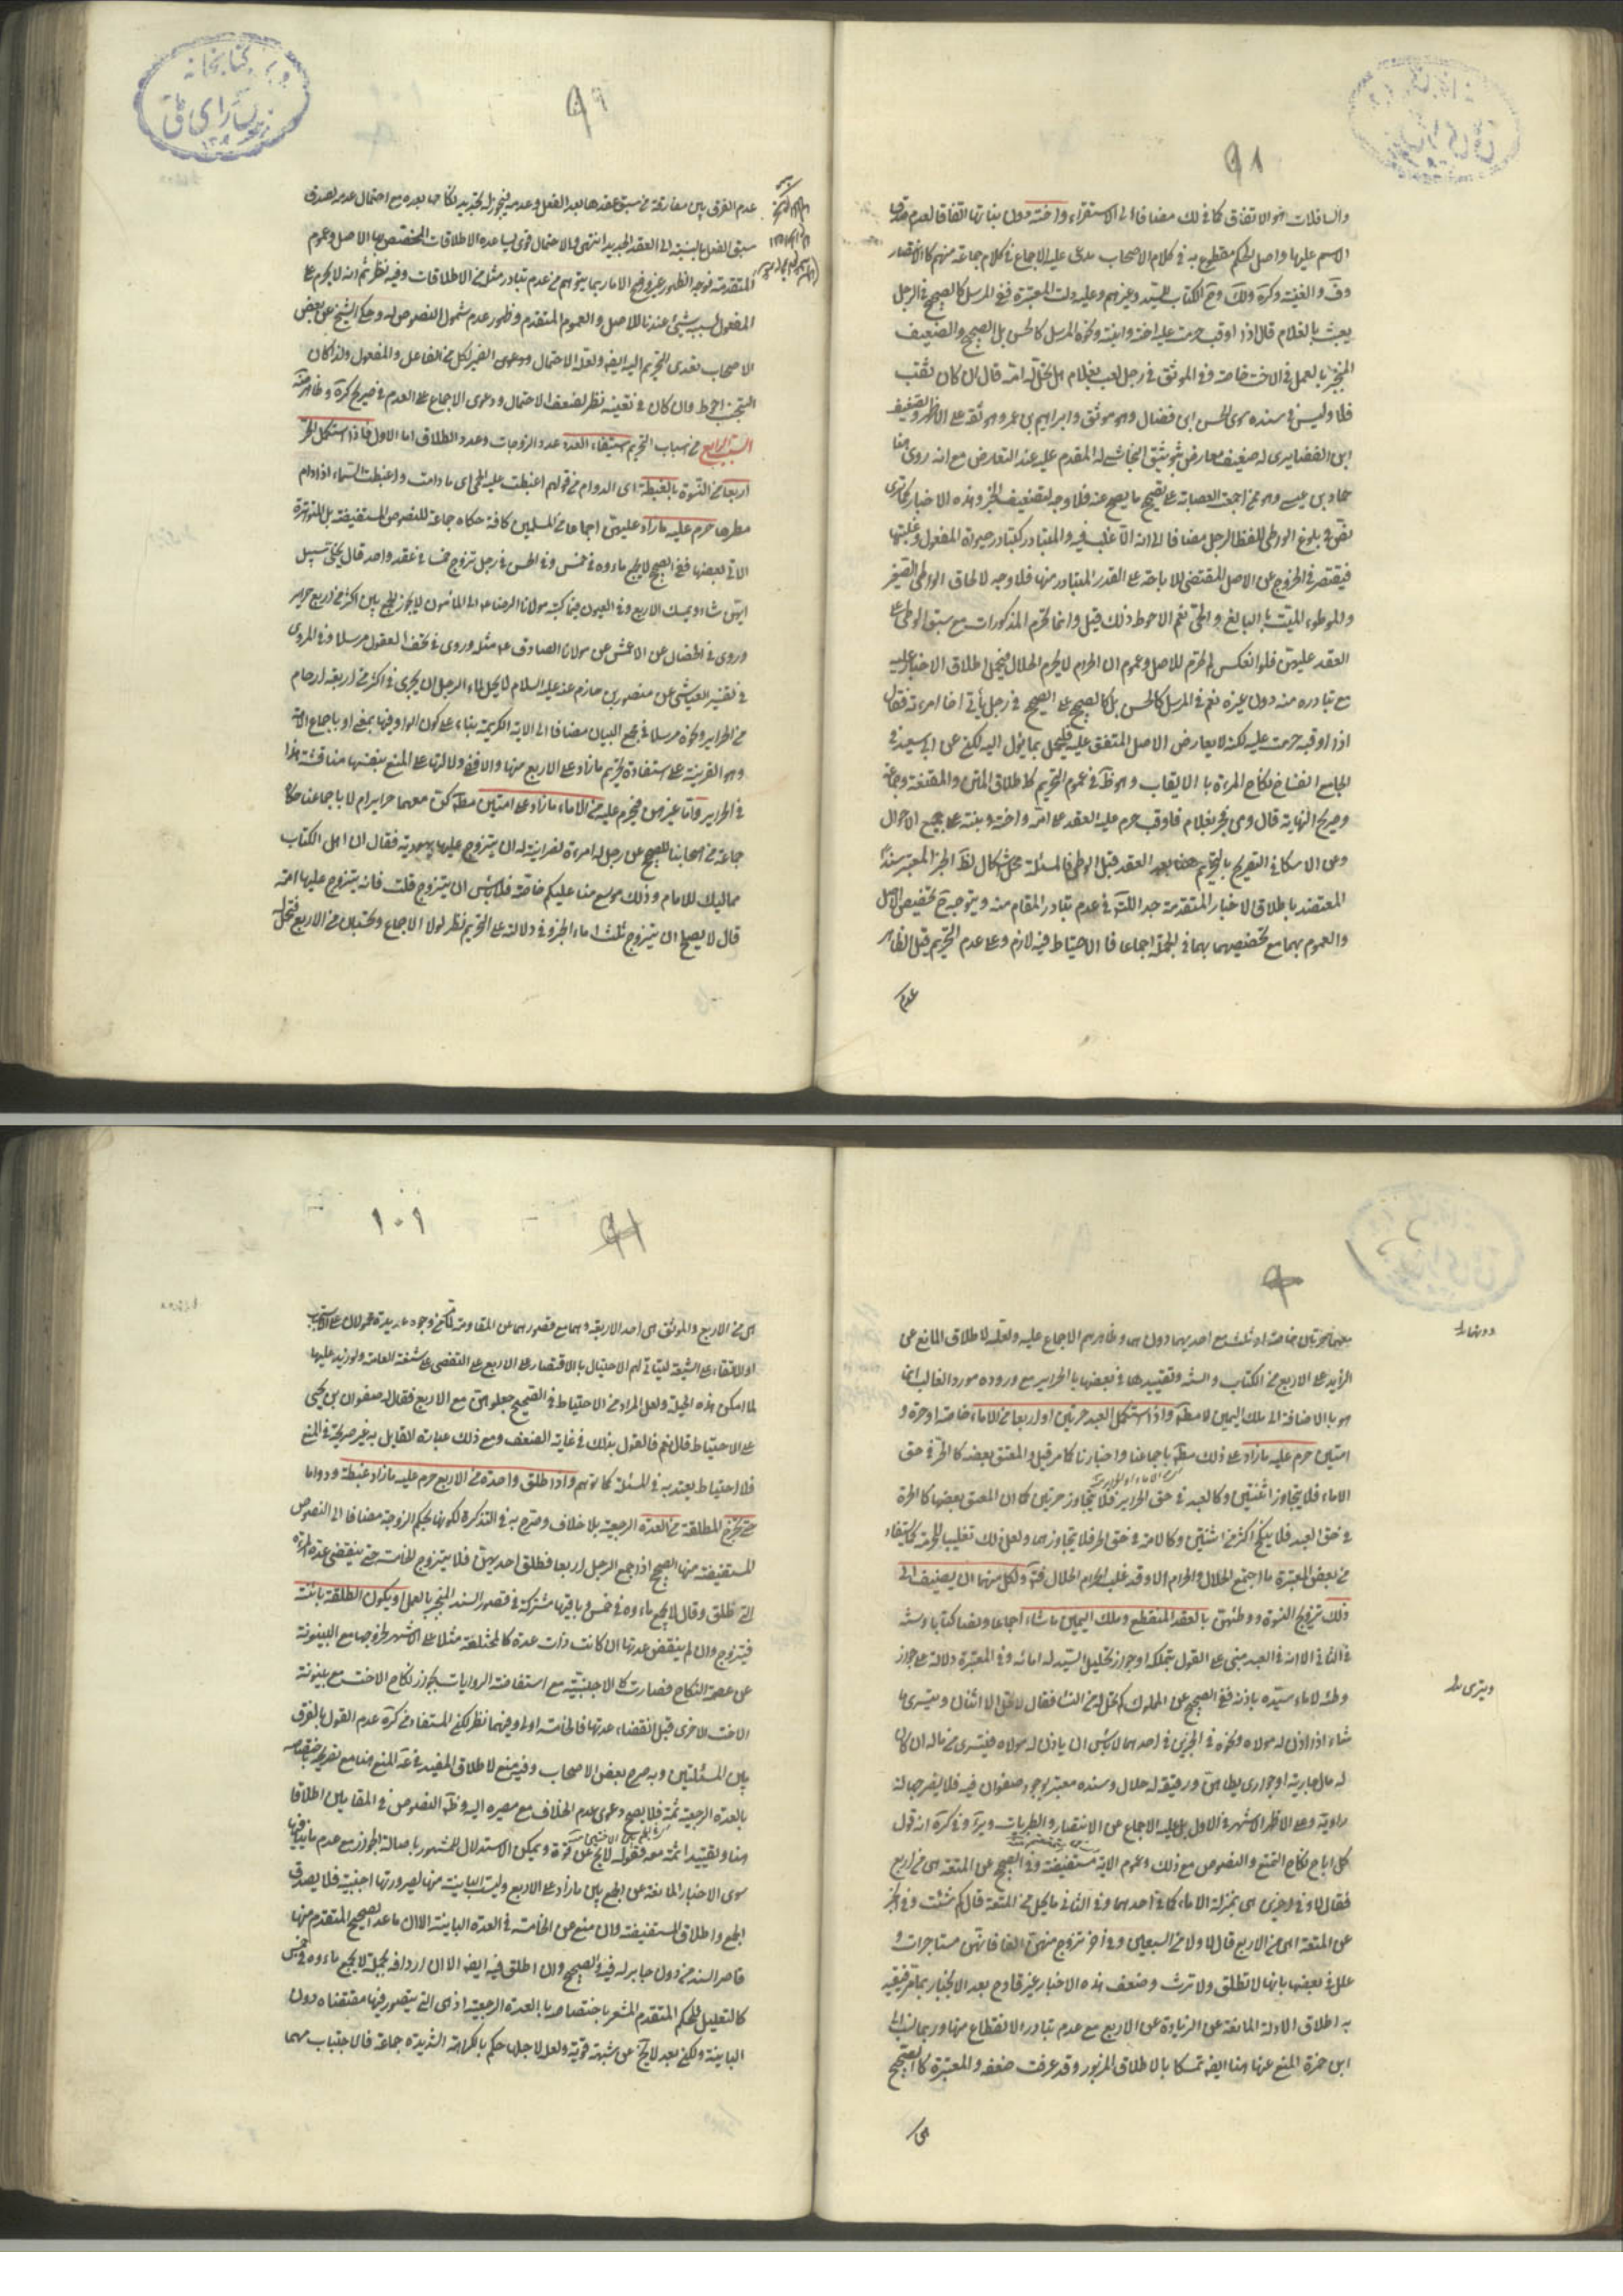 ٩٨
والسافلات هو الاتفاق كما في ذلك مضافا الى الاستقراء واخته دون بناتها اتفاقا لعدم صدق
الاسم عليها واصل الحكم مقطوع به في كلام الاصحاب مدعى عليه الاجماع في كلام جماعة منهم كالانتصار
وف والغنية وكرة ولك وغيرهم وعليه دلت المعتبرة ففي المرسل كالصحيح في الرجل
يعبث بالغلام قال اذا اوقب حرمت عليه اخته وابنته ونحوه المرسل كالحسن بل الصحيح والضعيف
المنجبر بالعمل في الاخت خاصة وفي الموثق في رجل لعب بغلام هل تحل له امه قال ان كان ثقب
فلا وليس في سنده سوى الحسن ابن فضال وهو موثق وابراهيم بن عمر وهو ثقة على الاظهر وتضعيف
ابن الغضايري له ضعيف معارض بتوثيق النجاشي له المقدم عليه عند التعارض مع انه روى هنا
حماد بن عيسى وهو ممن اجمعت العصابة على تصحيح ما يصح عنه فلا وجه لتضعيف الخبر وهذه الاخبار كما ترى
نص في بلوغ الواطي للفظ الرجل مضافا الى انه الاغلب فيه والمتبادر كتبادر حيوة المفعول وغلبتها
فيقتصر في الخروج عن الاصل المقتضي للاباحة على القدر المتبادر منها فلا وجه لالحاق الواطي الصغير
والموطوء الميت بالبالغ والحي نعم الاحوط ذلك قيل وانما تحرم المذكورات مع سبق الوطي على
العقد عليهن فلو انعكس لم تحرم للاصل وعموم ان الحرام لا يحرم الحلال فيحمل اطلاق الاخبار عليه
مع تبادره منه دون غيره نعم في المرسل كالحسن بل كالصحيح على الصحيح في رجل يأتي اخا امرءته فقال
اذا اوقبه حرمت عليه لكنه لا يعارض الاصل المتفق عليه فليحمل بما يئول اليه لكن عن ابن سعيد في
الجامع انفساخ نكاح المرءة بالايقاب وهو ظ في عموم التحريم كاطلاق المتن والمقنعة وجماعة
وصريح النهاية قال ومن فجر بغلام فاوقب حرم عليه العقد على امه واخته وبنته على جميع الاحوال
وعن الاسكافي التصريح بالتحريم هنا بعد العقد قبل الوطي فالمسئلة محل اشكال لظ الخبر المعتبر سندا
المعتضد باطلاق الاخبار المتقدمة
والعموم بهما مع تخصيصهما بهما في الجملة اجماعا فالاحتياط فيه لازم وعلى عدم التحريم قيل الظاهر
عدم
٩٩
عدم الفرق بين مفارقة من سبق عقدها بعد الفعل وعدمه فيجوز له تجديد نكاحها بعده مع احتمال عدمه لصدق
سبق الفعل بالنسبة الى العقد الجديد انتهى والاحتمال قوى لمساعدة الاطلاقات المختص بها الاصل وعموم
المفعول بسببه شيء عندنا للاصل والعموم المتقدم وظهور عدم شمول النصوص له وحكى الشيخ عن بعض
الاصحاب تعدى التحريم اليه ايضا ولعله لاحتمال ودعوى الضمير لكل من الفاعل والمفعول ولذا كان
التجنب احوط وان كان في تعينه نظر لضعف الاحتمال ودعوى الاجماع على العدم في صريح كرة وظاهر
السبب الرابع من اسباب التحريم استيفاء العدد عدد الزوجات وعدد الطلاق اما الاول فاذا استكمل الحر
اربعا من النسوة بالغبطة اى الدوام من قولهم اغبطت عليه الحمى اى دامت واغبطت السماء اذا دام
مطرها حرم عليه ما زاد عليهن اجماعا من المسلمين كافة حكاه جماعة للنصوص المستفيضة بل المتواترة
الاتي بعضها ففي الصحيح لا يجمع ماءه في خمس وفي الحسن في رجل تزوج خمسا في عقد واحد قال يخلى سبيل
ايتهن شاء ويمسك الاربع وفي العيون فيما كتبه مولانا الرضا ع الى المأمون لا يجوز الجمع بين اكثر من اربع حراير
وروى في الخصال عن الاعمش عن مولانا الصادق ع مثله وروى في تحف العقول مرسلا وفي المروى
في تفسير العياشي عن منصور بن حازم عنه عليه السلام لا يحل لماء الرجل ان يجرى في اكثر من اربعة ارحام
من الحراير ونحوه مرسلا في مجمع البيان مضافا الى الاية الكريمة بناء على كون الواو فيها بمعنى او باجماع الامة
وهو القرينة على استفادة تحريم ما زاد على الاربع منها والا ففي دلالتها على المنع بنفسها مناقشة هذا
في الحراير واما غيرهن فيحرم عليه من الاماء ما زاد على امتين مط كن معهما حراير ام لا باجماعنا حكاه
جماعة من اصحابنا للصحيح عن رجل له امرءة نصرانية له ان يتزوج عليها يهودية فقال ان اهل الكتاب
مماليك للامام وذلك موسع منا عليكم خاصة فلا باس ان يتزوج قلت فانه يتزوج عليها امة
قال لا يصلح ان يتزوج ثلث اماء الخبر وفي دلالته على التحريم نظر لولا الاجماع وتحتسبان من الاربع فتحل
معهما حرتان خاصة او ثلث مع احديهما دون هما وظاهرهم الاجماع عليه ولعله لاطلاق المانع عن
الزايد على الاربع من الكتاب والسنة وتقييدها في بعضها بالحراير مع وروده مورد الغالب انما
هو بالاضافة الى ملك اليمين لا مط واذا استكمل العبد حرتين او اربعا من الاماء خاصة او حرة و
امتين حرم عليه ما زاد على ذلك مط باجماعنا واخبارنا كما مر قيل والمعتق بعضه كالحر في حق
الاماء فلا يتجاوز اثنتين وكالعبد في حق الحراير فلا يتجاوز حرتين كما ان المعتق بعضها كالحرة
في حق العبد فلا ينكح اكثر من اثنتين وكالامة في حق الحر فلا يتجاوزهما ولعل ذلك تغليب للحرمة كما يستفاد
من بعض المعتبرة ما اجتمع الحلال والحرام الا وقد غلب الحرام الحلال ولكل منهما ان يضيف الى
ذلك تزويج النسوة ووطئهن بالعقد المنقطع وملك اليمين ما شاء اجماعا ونصا كتابا وسنة
في الثاني الا انه في العبد مبني على القول بتملكه او جواز تحليل السيد له امائه وفي المعتبرة دلالة على جواز
وطئه لاماء سيده باذنه ففي الصحيح عن المملوك كم تحل له من النسا فقال لا تحل الا اثنتان ويتسرى ما
شاء اذا اذن له مولاه ونحوه في الخبرين في احدهما لا باس ان ياذن له مولاه فيشترى من ماله ان كان
له مال جارية او جوارى يطاهن ورقيقه له حلال وسنده معتبر بوجود صفوان فيه فلا يضر جهالة
راويه وعلى الاظهر الاشهر في الاول بل عليه الاجماع عن الانتصار والطبريات وئر وفي كرة انه قول
كل من اباح نكاح التمتع والنصوص مع ذلك وعموم الاية مستفيضة وفي الصحيح عن المتعة اهى من الاربع
فقال لا وفي اخرى هى بمنزلة الاماء كما في احدهما وفي الثاني ما يحل من المتعة قال كم شئت وفي الخبر
عن المتعة اهى من الاربع قال لا ولا من السبعين وفي اخر تزوج منهن الفا فانهن مستاجرات و
علل في بعضها بانها لا تطلق ولا ترث وضعف هذه الاخبار غير قادح بعد الانجبار بما مر فيقيد
به اطلاق الادلة المانعة عن الزيادة عن الاربع مع عدم تبادر الانقطاع منها وربما نسب الى
ابن حمزة المنع عنها هنا ايضا تمسكا بالاطلاق المزبور وقد عرفت ضعفه والمعتبرة كالصحيح
هى
١٠١
هى من الاربع والموثق هى احد الاربعة وهما مع قصورهما عن المقاومة لما مر من وجوه عديدة محمولان على الاستحباب
او الاتقاء على الشيعة ليتأتى لهم الاحتيال بالاقتصار على الاربع على التفصي على شنعة العامة ولو زيد عليها
لما امكن هذه الحيلة ولعل المراد من الاحتياط في الصحيح جعلوهن مع الاربع فقال له صفوان بن يحيى
على الاحتياط قال نعم فالقول بذلك في غاية الضعف ومع ذلك عبارة القايل به غير صريحة في المنع
فلا احتياط يعتد به في المسئلة كما توهم واذا طلق واحدة من الاربع حرم عليه ما زاد غبطة ودواما
حتى تخرج المطلقة من العدة الرجعية بلا خلاف وصرح به في التذكرة لكونها بحكم الزوجة مضافا الى النصوص
المستفيضة منها الصحيح اذا جمع الرجل اربعا فطلق احديهن فلا يتزوج الخامسة حتى ينقضي عدة المرءة
التي طلق وقال لا يجمع ماءه في خمس وباقيها مشتركة في قصور السند المنجبر بالعمل او يكون الطلقة بائنة
فيتزوج وان لم ينقض عدتها ان كانت ذات عدة كالمختلعة مثلا على الاشهر لخروجها مع البينونة
عن عصمة النكاح فصارت كالاجنبية مع استفاضة الروايات بجواز نكاح الاخت مع بينونة
الاخت الاخرى قبل انقضاء عدتها فالخامسة اولى وفيهما نظر لكن المستفاد من كرة عدم القول بالفرق
بين المسئلتين وبه صرح بعض الاصحاب
بالعدة الرجعية ثمة فلا يصح دعوى عدم الخلاف مع مصيره اليه وظ النصوص في المقامين اطلاقا
هنا وتقييدا ثمة معه فقوله لا يخ عن قوة ويمكن الاستدلال للمشهور باصالة الجواز مع عدم ما ينافيها
سوى الاخبار المانعة عن الجمع بين ما زاد على الاربع وليست البائنة منها لصيرورتها اجنبية فلا يصدق
الجمع واطلاق المستفيضة وان منع عن الخامسة في العدة البائنة الا ان ما عدا الصحيح المتقدم منها
قاصر السند من دون جابر له فيه والصحيح وان اطلق فيه ايضا الا ان اردافه بجملة لا يجمع ماءه في خمس
كالتعليل للحكم المتقدم المشعر باختصاصه بالعدة الرجعية اذ هى التي يتصور فيها مقتضاه دون
البائنة ولكن بعد لا يخ عن شبهة قوية ولعل لاجلها حكم بالكراهة الشديدة جماعة فالاجتناب مهما